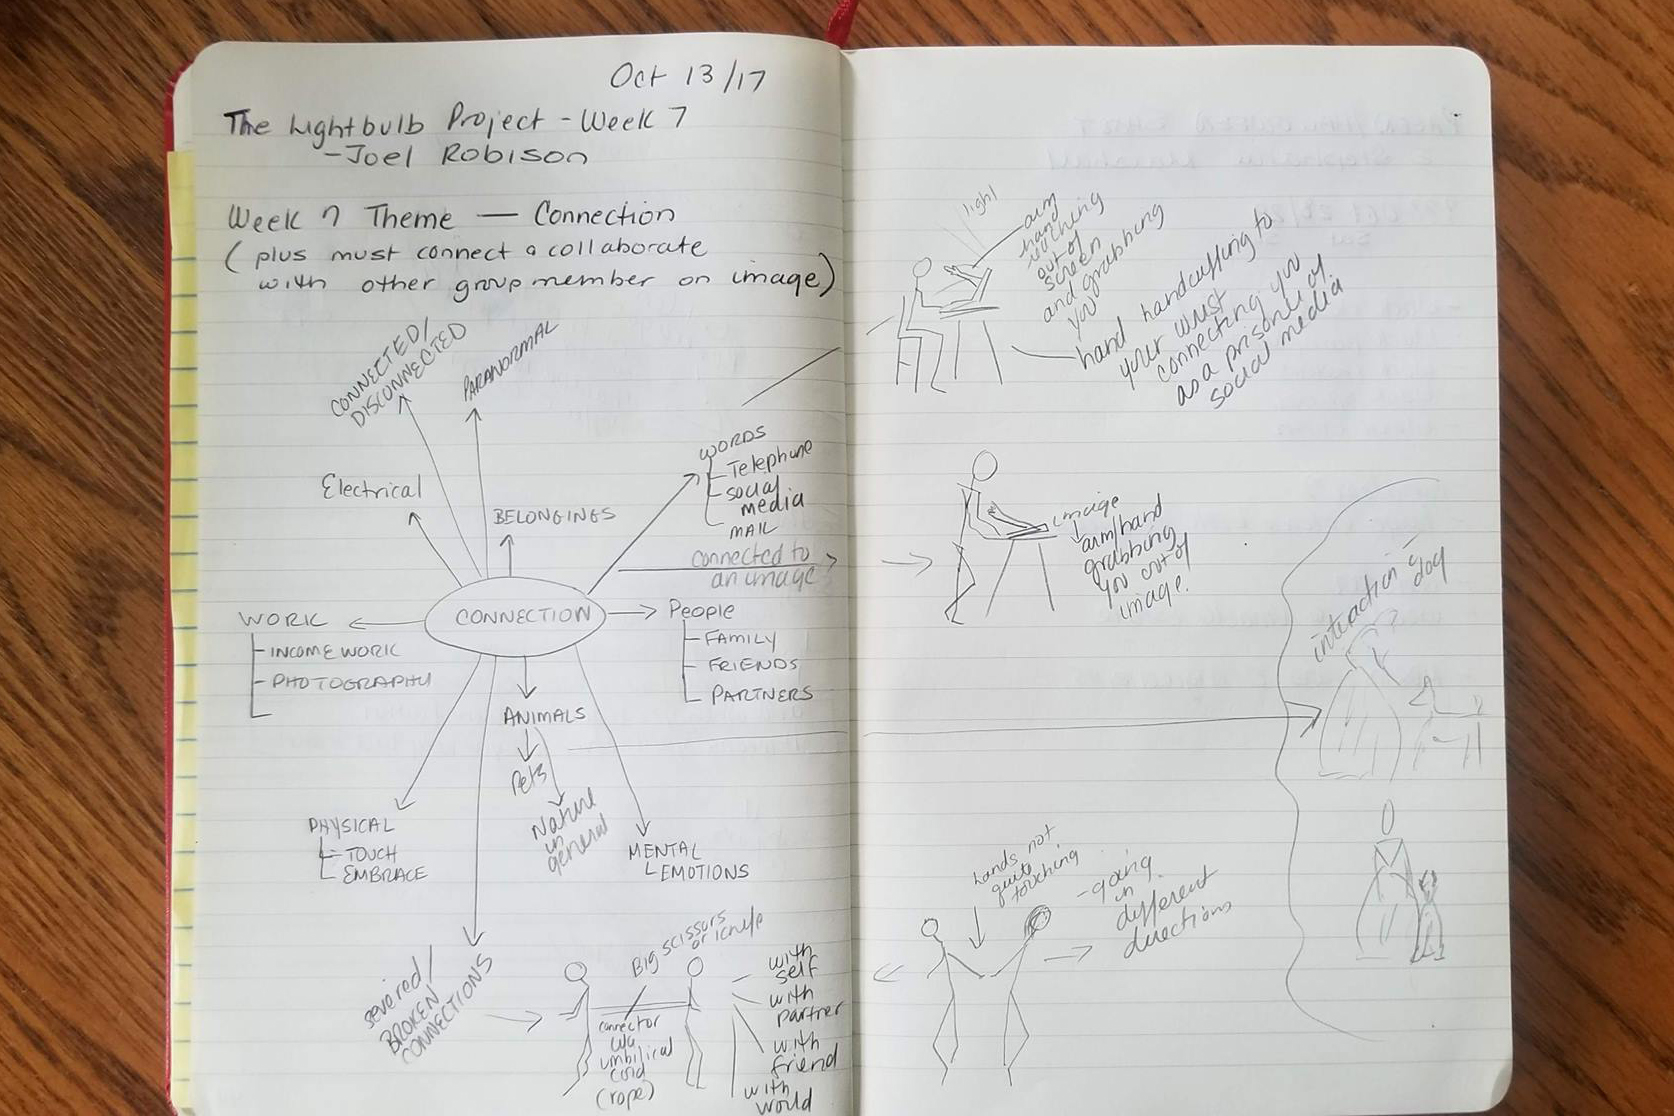 Oct 13/17
The Lightbulb Project - Week 7
- Joel Robison
Week 7 Theme — Connection
(plus must connect & collaborate
with other group member on image)
CONNECTED/
DISCONNECTED
PARANORMAL
Electrical
BELONGINGS
WORDS
Telephone
social
media
MAIL
connected to
an image
CONNECTION
WORK
INCOME WORK
PHOTOGRAPHY
People
FAMILY
FRIENDS
PARTNERS
ANIMALS
Pets
Nature
in
general
PHYSICAL
TOUCH
EMBRACE
MENTAL
EMOTIONS
severed/
BROKEN
CONNECTIONS
Big scissors
or knife
connector
umbilical
cord
(rope)
with
self
with
partner
with
friend
with
world
light
arm
hand
reaching
out of
screen
and grabbing
you
hand handcuffing to
your wrist
connecting you
as a prisoner of
social media
image
arm/hand
grabbing
you out of
image.
interaction
dog
hands not
quite
touching
- going
in
different
directions